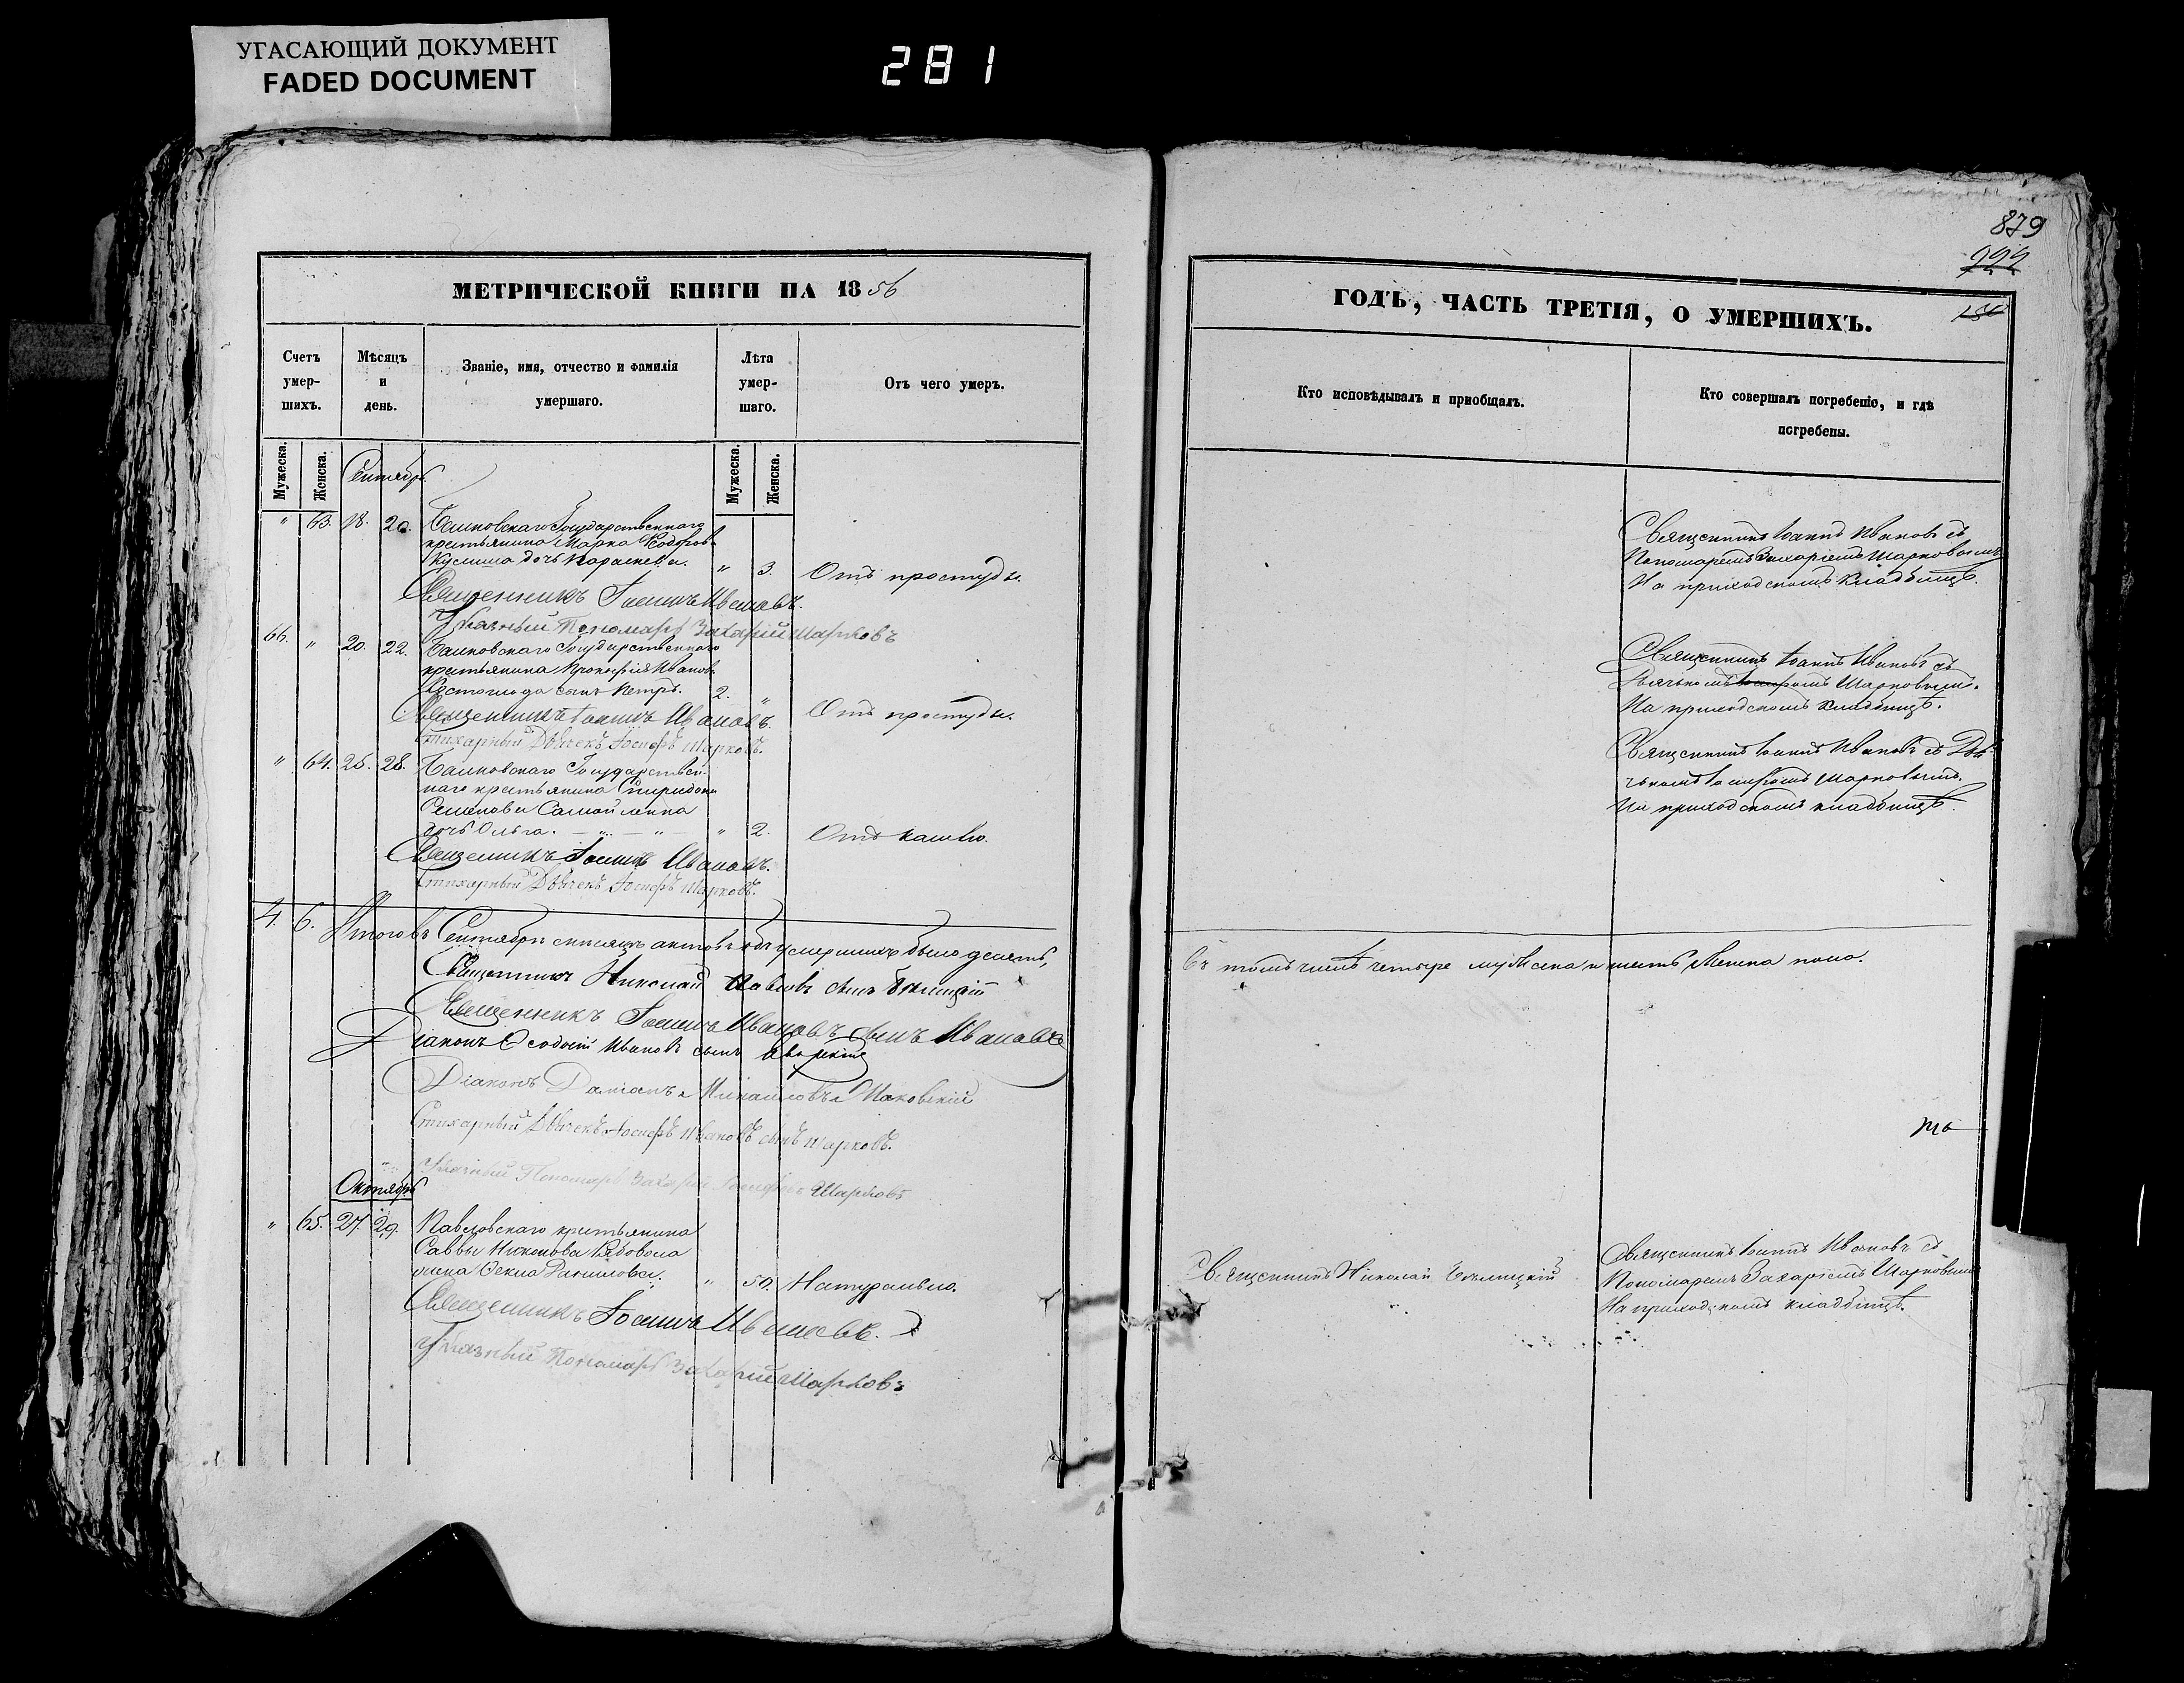 УГАСАЮЩИЙ ДОКУМЕНТ
FADED DOCUMENT
281
МЕТРИЧЕСКОЙ КНИГИ НА 1856
Счетъ умер-шихъ.
Мѣсяцъ и день.
Званіе, имя, отчество и фамилія умершаго.
Лѣта умер-шаго.
Отъ чего умеръ.
Мужеска.
Женска.
Мужеска.
Женска.
Сентябрь
" 63. 18. 20. Государственнаго
крестьянина Марка Ѳедоров
дочь Параскева. " 3. Отъ простуды.
Священникъ Іоаннъ Ивановъ.
Указный Пономарь Захарій Шарковъ
66. " 20. 22. Государственнаго
крестьянина Прокофія Иванов
сынъ Петръ. 2. " Отъ простуды.
Священникъ Іоаннъ Ивановъ.
Стихарный Дьячекъ Іосифъ Шарковъ.
" 64. 26. 28. Государствен-
наго крестьянина Спиридона
Семенова Самойленка
дочь Ольга. " 2. Отъ кашлю.
Священникъ Іоаннъ Ивановъ.
Стихарный Дьячекъ Іосифъ Шарковъ.
4. 6. Итого въ Сентябрѣ мѣсяцѣ актовъ объ умершихъ было десять,
Священникъ Николай Павловъ сынъ
Священникъ Іоаннъ Ивановъ сынъ Ивановъ
Діаконъ Ѳеодосій Ивановъ сынъ
Діаконъ Даміанъ Михайловъ Маковскій
Стихарный Дьячекъ Іосифъ Ивановъ сынъ Шарковъ.
Указный Пономарь Захарій Іосифовъ Шарковъ
Октябрь
" 65. 27. 29. Павловскаго крестьянина
Саввы Никонова
жена Ѳекла Данилова. " 50. Натурально.
Священникъ Іоаннъ Ивановъ.
Указный Пономарь Захарій Шарковъ
879
999
ГОДЪ, ЧАСТЬ ТРЕТІЯ, О УМЕРШИХЪ.
Кто исповѣдывалъ и пріобщалъ.
Кто совершалъ погребеніе, и гдѣ погребены.
Священникъ Іоаннъ Ивановъ съ
Пономаремъ Захаріемъ Шарковымъ
На приходскомъ кладбищѣ.
Священникъ Іоаннъ Ивановъ съ
Дьячкомъ Шарковымъ.
На приходскомъ кладбищѣ.
Священникъ Іоаннъ Ивановъ съ Дья-
чкомъ Іосифомъ Шарковымъ.
На приходскомъ кладбищѣ.
Въ томъ числѣ четыре мужеска и шесть женска пола.
Священникъ Николай
Священникъ Іоаннъ Ивановъ съ
Пономаремъ Захаріемъ Шарковымъ
На приходскомъ кладбищѣ.